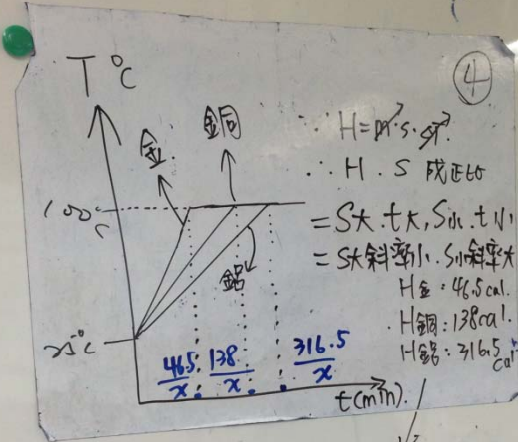 ④
T °C
金
銅
100°C
鋁
25°C
46.5/x
138/x
316.5/x
t(min).
∵ H=m·s·ΔT
∴ H . S 成正比
=S大.t大,S小.t小
=S大斜率小.S小斜率大
H金:46.5cal.
H銅:138cal.
H鋁:316.5cal